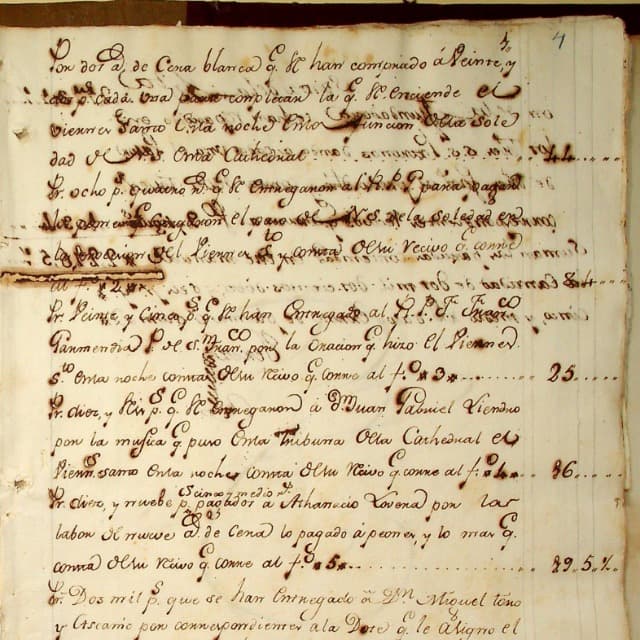 4
Por dos @ de Cera blanca q. se han comprado á Veinte, y
dos p.s cada una para completar la q. se enciende el
Viernes Santo en la noche en la funcion de la Sole
dad de N.S. en la Cathedral 44
Pr. ocho p.s quatro r.s q. se entregaron al R.P. para pagar
el paso de N.S. de la Soledad en
la procecion del Viernes S.to y consta de su recivo q. corre
al f.° 2 8.4
Pr. Veinte, y Cinco p.s q. se han entregado al R.P.F. Fran.co
Garmendia de S.n Fran.co por la oracion q. hizo el Viernes
S.to en la noche consta de su recivo q. corre al f.° 3 25
Pr. diez, y seis p.s q. se entregaron á d.n Juan Gabriel Liendo
por la musica q. puso en la Tribuna de la Cathedral el
Viern.s santo en la noche consta de su recivo q. corre al f.° 4 16
Pr. diez, y nueve p.s cinco y medio r.s pagados á Athanacio Lovera por las
labor de nueve @ de Cera lo pagado á peones, y lo mas q.
consta de su recivo q. corre al f.° 5 19.5.½
Pr. Dos mil p.s que se han Entregado á D.n Miguel
y Ascanio por correspondientes a la Dote q. le asigno el